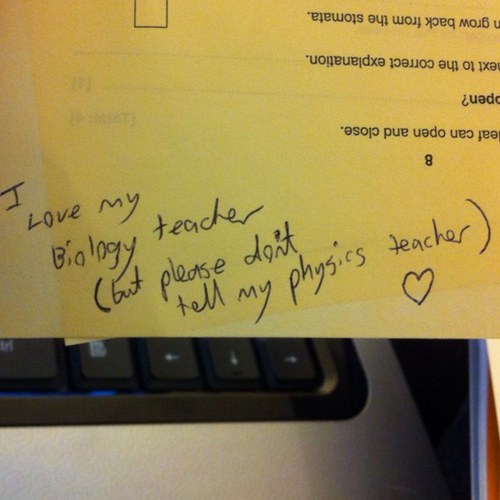 I
Love my
Biology teacher
(but please don't
tell my physics teacher)
♡
8
leaf can open and close.
open?
next to the correct explanation.
grow back from the stomata.
ctrl